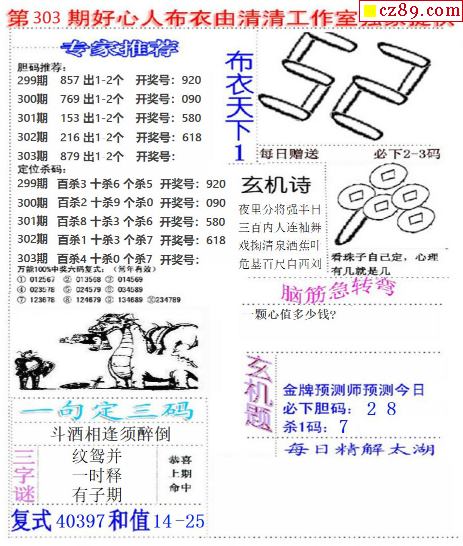 第303期好心人布衣由清清工作室
cz89.com
专家推荐
胆码推荐:
299期 857 出1-2个 开奖号: 920
300期 769 出1-2个 开奖号: 090
301期 153 出1-2个 开奖号: 580
302期 216 出1-2个 开奖号: 618
303期 879 出1-2个 开奖号:
定位杀码:
299期 百杀3 十杀6 个杀5 开奖号: 920
300期 百杀2 十杀9 个杀0 开奖号: 090
301期 百杀8 十杀3 个杀6 开奖号: 580
302期 百杀1 十杀3 个杀7 开奖号: 618
303期 百杀4 十杀0 个杀7 开奖号:
万能100%中奖六码复式:(常年有效)
① 012567 ② 013568 ③ 014569
④ 023578 ⑤ 024579 ⑥ 034589
⑦ 123678 ⑧ 124679 ⑨ 134689 ⑩234789
一句定三码
斗酒相逢须醉倒
三字谜
纹鸳并
一时释
有子期
恭喜
上期
命中
复式 40397 和值 14-25
布衣天下1
每日赠送 必下2-3码
玄机诗
夜里分将强半日
三百内人连袖舞
戏掬清泉洒蕉叶
危基百尺白西刘
看珠子自己定,心理
有几就是几
脑筋急转弯
一颗心值多少钱?
玄机题
金牌预测师预测今日
必下胆码: 2 8
杀1码: 7
每日精解太湖